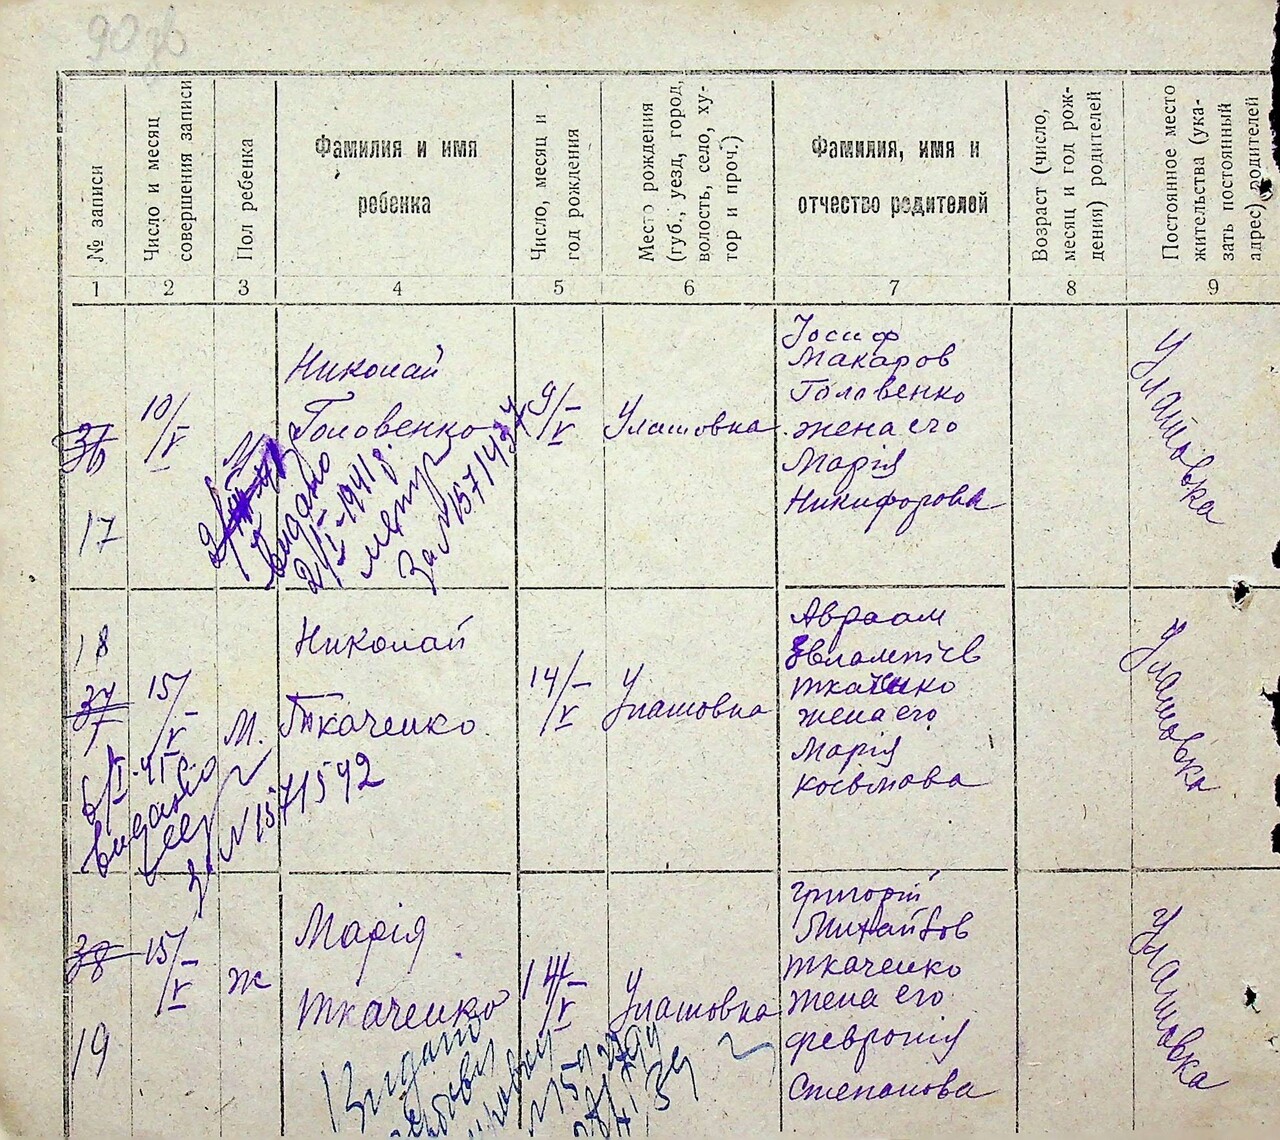 90 об
№ записи
Число и месяц
совершения записи
Пол ребенка
Фамилия и имя
ребенка
Число, месяц и
год рождения
Место рождения
(губ., уезд, город,
волость, село, ху-
тор и проч.)
Фамилия, имя и
отчество родителей
Возраст (число,
месяц и год рож-
дения) родителей
Постоянное место
жительства (ука-
зать постоянный
адрес) родителей
1 2 3 4 5 6 7 8 9
36
17
10/V
М
Николай
Головенко
9/V
Улашовка
Іосиф
Макаров
Головенко
жена его
Марія
Никифорова
Улашовка
видано
2/I-1941 г.
метр
За № 1571437
18
37
15/V
М.
Николай
Ткаченко
14/V
Улашовка
Авраам
Евлампіев
Ткаченко
жена его
Марія
Косьмова
Улашовка
видано
№ 1571542
38
19
15/V
ж
Марія
Ткаченко
14/V
Улашовка
Григорій
Михайлов
Ткаченко
жена его
Февронія
Степанова
Улашовка
Видано